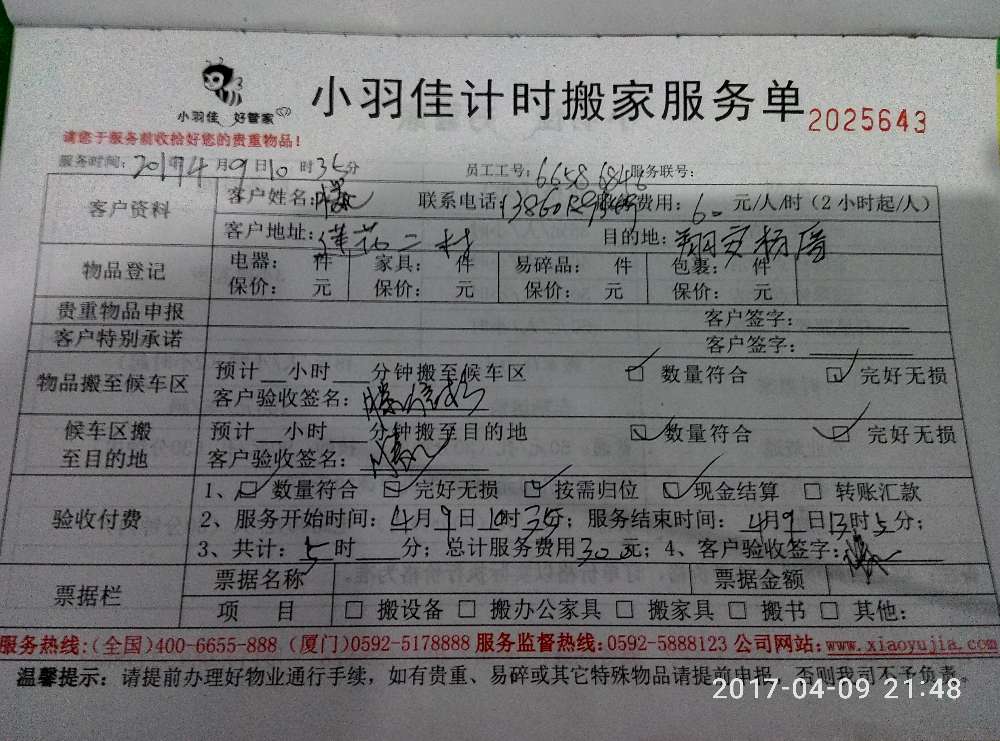 小羽佳 好管家
小羽佳计时搬家服务单 2025643
请您于服务前收拾好您的贵重物品！
服务时间：2017年4月9日10时35分 员工工号：6658 6846 服务联号：
客户资料 客户姓名： 联系电话： 费用：60元/人/时（2小时起/人）
客户地址：莲花二村 目的地：翔安
物品登记 电器： 件 家具： 件 易碎品： 件 包裹： 件
保价： 元 保价： 元 保价： 元 保价： 元
贵重物品申报 客户签字：
客户特别承诺 客户签字：
物品搬至候车区 预计__小时__分钟搬至候车区 □ 数量符合 □ 完好无损
客户验收签名：
候车区搬至目的地 预计__小时__分钟搬至目的地 □ 数量符合 □ 完好无损
客户验收签名：
验收付费 1、□ 数量符合 □ 完好无损 □ 按需归位 □ 现金结算 □ 转账汇款
2、服务开始时间：4月9日10时35分；服务结束时间：4月9日13时5分；
3、共计：5时__分；总计服务费用300元；4、客户验收签字：
票据栏 票据名称 票据金额
项 目 □ 搬设备 □ 搬办公家具 □ 搬家具 □ 搬书 □ 其他：
服务热线：(全国)400-6655-888 (厦门)0592-5178888 服务监督热线：0592-5888123 公司网站：www.xiaoyujia.com
温馨提示：请提前办理好物业通行手续，如有贵重、易碎或其它特殊物品请提前申报，否则我司不予负责。
2017-04-09 21:48